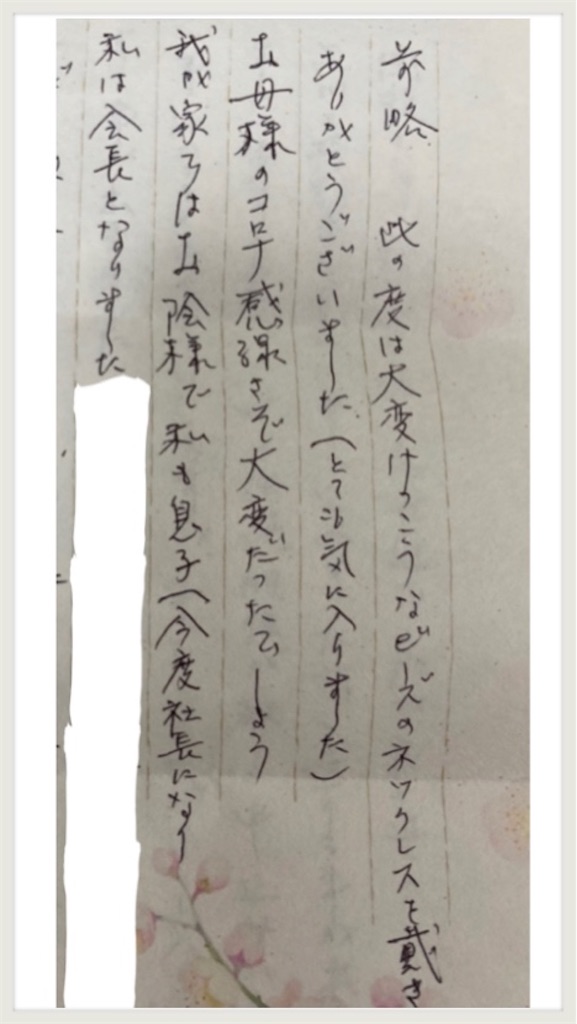 前略　此の度は大変けっこうなビーズのネックレスを戴き
ありがとうございました（とても気に入りました）
お母様のコロナ感染さぞ大変だったでしょう
我が家ではお陰様で私も息子（今度社長になり
私は会長となりました